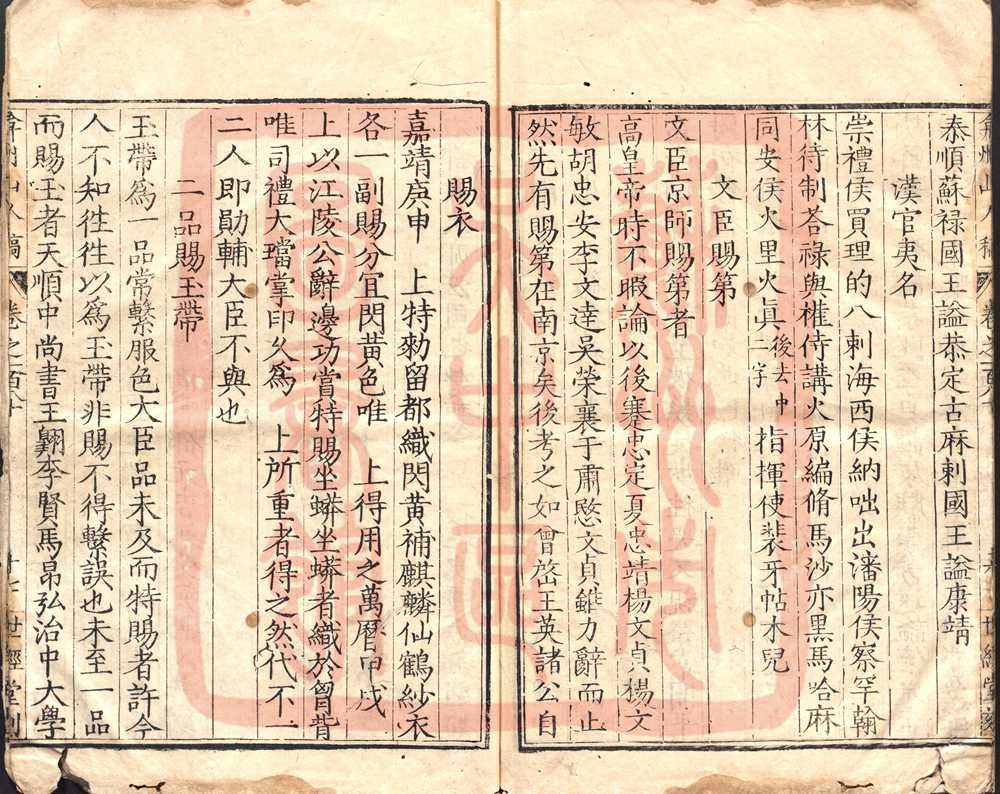 泰順蘇祿國王謚恭定古麻剌國王謚康靖
漢官夷名
崇禮侯買理的八剌海西侯納哈出瀋陽侯察罕翰
林待制荅祿與權侍講火原編脩馬沙亦黑馬哈麻
同安侯火里火眞後去中二字指揮使裴牙帖木兒
文臣賜第
文臣京師賜第者
高皇帝時不暇論以後蹇忠定夏忠靖楊文貞楊文
敏胡忠安李文達吳榮襄于肅愍文貞錐力辭而止
然先有賜第在南京矣後考之如曾棨王英諸公自
賜衣
嘉靖庚申　上特勑留都織閃黃補麒麟仙鶴紗衣
各一副賜分宜閃黃色唯　上得用之萬曆甲戌
上以江陵公辭邊功賞特賜坐蟒坐蟒者織於胷背
唯司禮大璫掌印久爲　上所重者得之然代不一
二人即勛輔大臣不與也
二品賜玉帶
玉帶爲一品常繫服色大臣品未及而特賜者許今
人不知徃徃以爲玉帶非賜不得繫誤也未至一品
而賜玉者天順中尚書王翺李賢馬昂弘治中大學
弇州山人稿　卷之百七十　世經堂刻